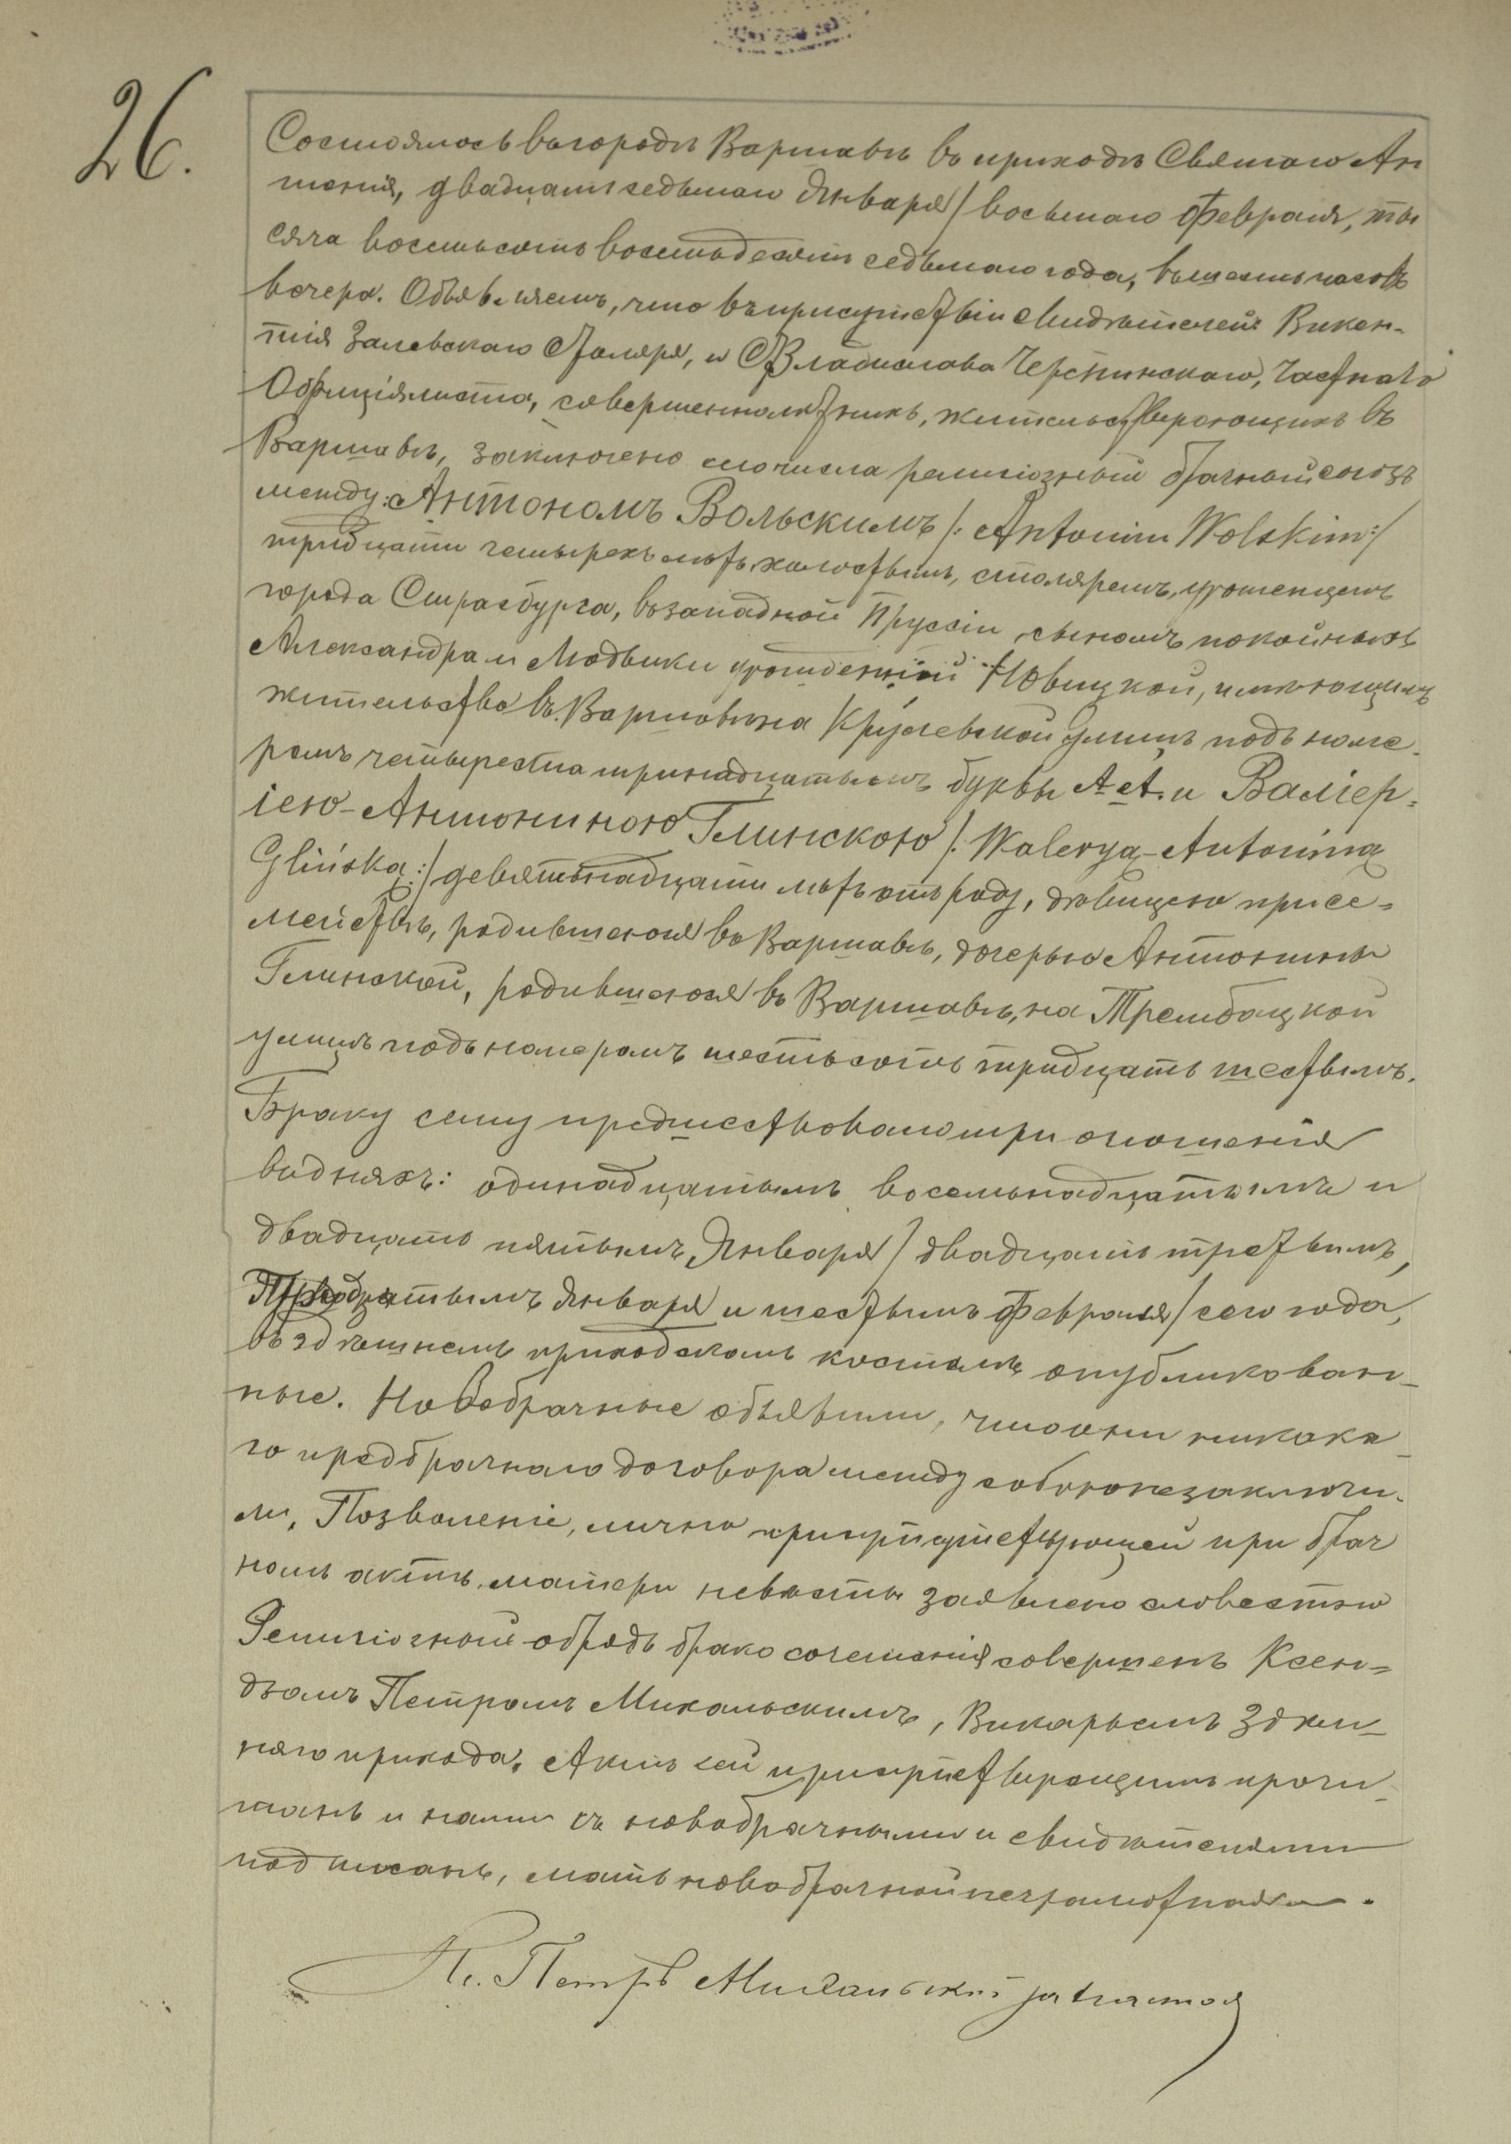 26.
Состоялось въ городѣ Варшавѣ въ приходѣ Святаго Ан
тонія, двадцать седьмаго Января / восьмаго Февраля, ты
сяча восемьсотъ восемьдесятъ седьмаго года, въ шесть часовъ
вечера. Объявляемъ, что въ присутствіи свидѣтелей: Викен-
тія Залевскаго Столяра, и Владислава Черспинскаго, Частнаго
Офиціялиста, совершеннолѣтнихъ, жительствующихъ въ
Варшавѣ, заключено сего числа религіозный брачный союзъ
между: Антономъ Вольскимъ /: Antonim Wolskim :/
тридцати четырехъ лѣтъ, холостымъ, столяремъ, урожденцемъ
города Страсбурга, въ западной Пруссіи, сыномъ покойныхъ
Александра и Людвики урожденной Новицкой, имѣющимъ
жительство въ Варшавѣ на Кручевской улицѣ подъ номе-
ромъ четыреста тринадцатымъ буквы А. А. и Валіер-
іею-Антониною Глинскою /: Walerya-Antonina
Glińska :/ девятьнадцати лѣтъ отъ роду, дѣвицею при се-
мействѣ, родившеюся въ Варшавѣ, дочерью Антонины
Глинской, родившеюся въ Варшавѣ, на Трембацкой
улицѣ подъ номеромъ шестьсотъ тридцать шестымъ.
Браку сему предшествовало три оглошенія
въ дняхъ: одинадцатымъ, восемьнадцатымъ и
двадцать пятымъ Января / двадцать третьимъ,
Тридцатымъ Января и шестымъ Февраля / сего года,
въ здѣшнемъ приходскомъ костелѣ опубликован-
ные. Новобрачные объявили, что они никака-
го предбрачнаго договора между собою не заключи-
ли, Позволеніе, лично присутствующей при брач
номъ актѣ, матери невѣсты заявлено словестно
Религіозный обрядъ бракосочетанія совершенъ Ксен-
дзомъ Петромъ Михальскимъ, Викарьемъ Здѣш-
няго прихода. Актъ сей присутствующимъ прочи-
танъ и нами съ новобрачными и свидѣтелями
подписанъ, мать новобрачной неграмотная.
Кс. Петръ Михальскій